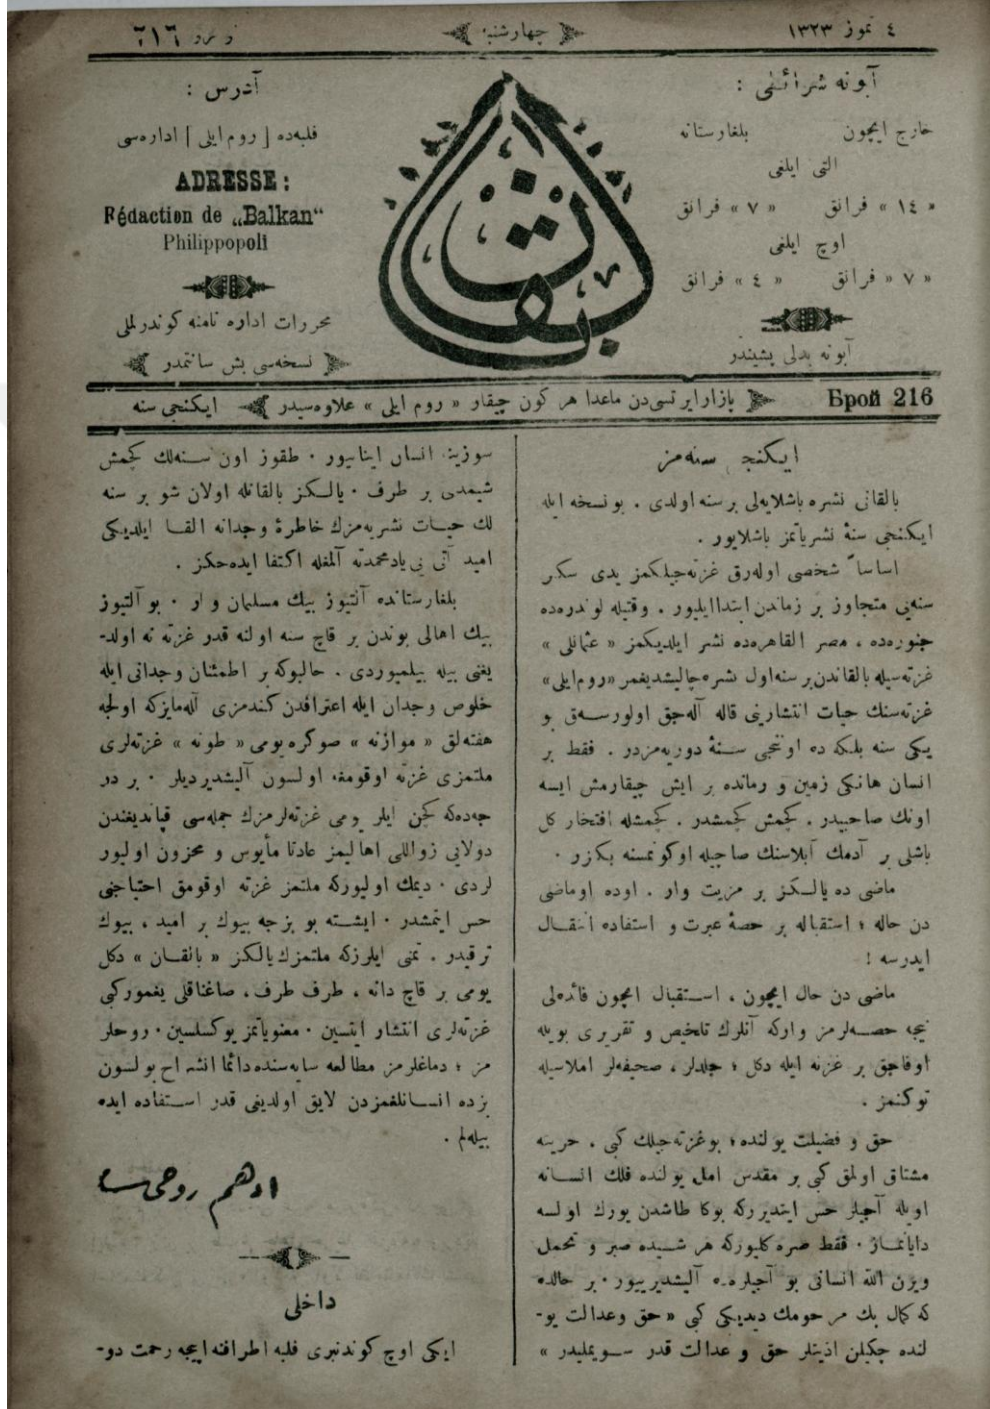 ٤ تموز ١٣٢٣
چهارشنبه
نومرو ٢١٦
آبونه شرائطی :
خارج ایچون بلغارستانه
التی ایلغی
« ١٤ » فرانق « ٧ » فرانق
اوچ ایلغی
« ٧ » فرانق « ٤ » فرانق
آبونه بدلی پشیندر
بالقان
آدرس :
فلبه‌ده [ روم ایلی ] اداره‌سی
ADRESSE:
Rédaction de „Balkan“
Philippopoli
محررات اداره نامنه كوندرلملی
نسخه‌سی بش سانتمدر
Брой 216
بازار ایرتسی‌دن ماعدا هر كون چیقار « روم ایلی » علاوه‌سیدر
ایكنجی سنه
ایكنجی سنه‌مز
بالقانی نشره باشلایه‌لی بر سنه اولدی . بو نسخه ایله
ایكنجی سنهٔ نشریاتمز باشلایور .
اساساً شخصی اوله‌رق غزته‌جیلكمز یدی سكز
سنه‌یی متجاوز بر زماندن ابتدا ایلیور . وقتیله لوندره‌ده
جنوره‌ده ، مصر القاهره‌ده نشر ایلدیكمز « عثمانلی »
غزته‌سیله بالقاندن بر سنه اول نشره چالیشدیغمز «روم ایلی»
غزته‌سنك حیات انتشارینی قاله آله‌جق اولورسه‌ق بو
یكی سنه بلكه ده اوننجی سنهٔ دوریه‌مزدر . فقط بر
انسان هانكی زمین و زمانده بر ایش چیقارمش ایسه
اونك صاحبیدر . كچمش كچمشدر . كچمشله افتخار كل
باشلی بر آدمك آبلاسنك صاچیله اوكونمسنه بكزر .
ماضی ده یالكز بر مزیت وار . اوده او ماضی
دن حاله ؛ استقباله بر حصهٔ عبرت و استفاده انتقال
ایدرسه !
ماضی دن حال ایچون ، استقبال ایچون فائده‌لی
نیجه حصه‌لرمز واركه آنلرك تلخیص و تقریری بویله
اوفاجق بر غزته ایله دكل ؛ جلدلر ، صحیفه‌لر املاسیله
توكنمز .
حق و فضیلت یولنده ؛ بو غزته‌جیلك كبی . حریته
مشتاق اولمق كبی بر مقدس امل یولنده فلك انسانه
اویله آجیلر حس ایتدیرركه بوكا طاشدن یورك اولسه
دایانماز . فقط صره كلیوركه هر شیده صبر و تحمل
ویرن الله انسانی بو آجیلره ده آلیشدیرییور . بر حالده
كه كمال بك مرحومك دیدیكی كبی « حق وعدالت یو-
لنده چكیلن اذیتلر حق و عدالت قدر سویملیدر »
سوزینه انسان اینانیور . طقوز اون سنه‌لك كچمش
شیمدی بر طرف . یالكز بالقانله اولان شو بر سنه
لك حیات نشریه‌مزك خاطرهٔ وجدانه القا ایلدیكی
امید آتی یی یاد محمدته آلمغله اكتفا ایده‌جكز .
بلغارستانده آلتیوز بیك مسلمان وار . بو آلتیوز
بیك اهالی بوندن بر قاچ سنه اولنه قدر غزته نه اولد-
یغنی بیله بیلمیوردی . حالبوكه بر اطمئنان وجدانی ایله
خلوص وجدان ایله اعترافدن كندمزی آله‌مایزكه اولجه
هفته‌لق « موازنه » صوكره یومی « طونه » غزته‌لری
ملتمزی غزته اوقومغه اولسون آلیشدیردیلر . بر در
جه‌ده‌كه كچن ایلر یومی غزته‌لرمزك جمله‌سی قپاندیغندن
دولایی زواللی اهالیمز عادتا مأیوس و محزون اولیور
لردی . دیمك اولیوركه ملتمز غزته اوقومق احتیاجنی
حس ایتمشدر . ایشته بو بزجه بیوك بر امید ، بیوك
ترقیدر . تمنی ایلرزكه ملتمزك یالكز « بالقان » دكل
یومی بر قاچ دانه ، طرف طرف ، صاغناقلی یغموركبی
غزته‌لری انتشار ایتسین . معنویاتمز یوكسلسین . روحلر
مز ؛ دماغلرمز مطالعه سایه‌سنده دائما انشراح بولسون
بزده انسانلغمزدن لایق اولدیغی قدر استفاده ایده
بیله‌لم .
ادهم روحی
داخلی
ایكی اوچ كوندنبری فلبه اطرافنه ایجه رحمت دو-